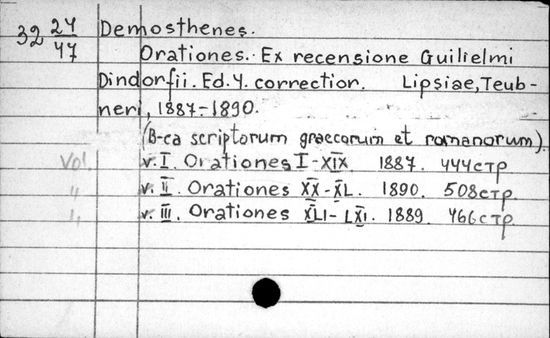 32 24/47 Demosthenes.
Orationes. Ex recensione Guilielmi
Dindorfii. Ed. 4. correction. Lipsiae, Teub-
neri, 1887-1890.
(B-ca scriptorum graecorum et romanorum).
Vol. v. I. Orationes I-XIX. 1887. 444стр
" v. II. Orationes XX-XL. 1890. 508стр
" v. III. Orationes XLI-LXI. 1889. 466стр